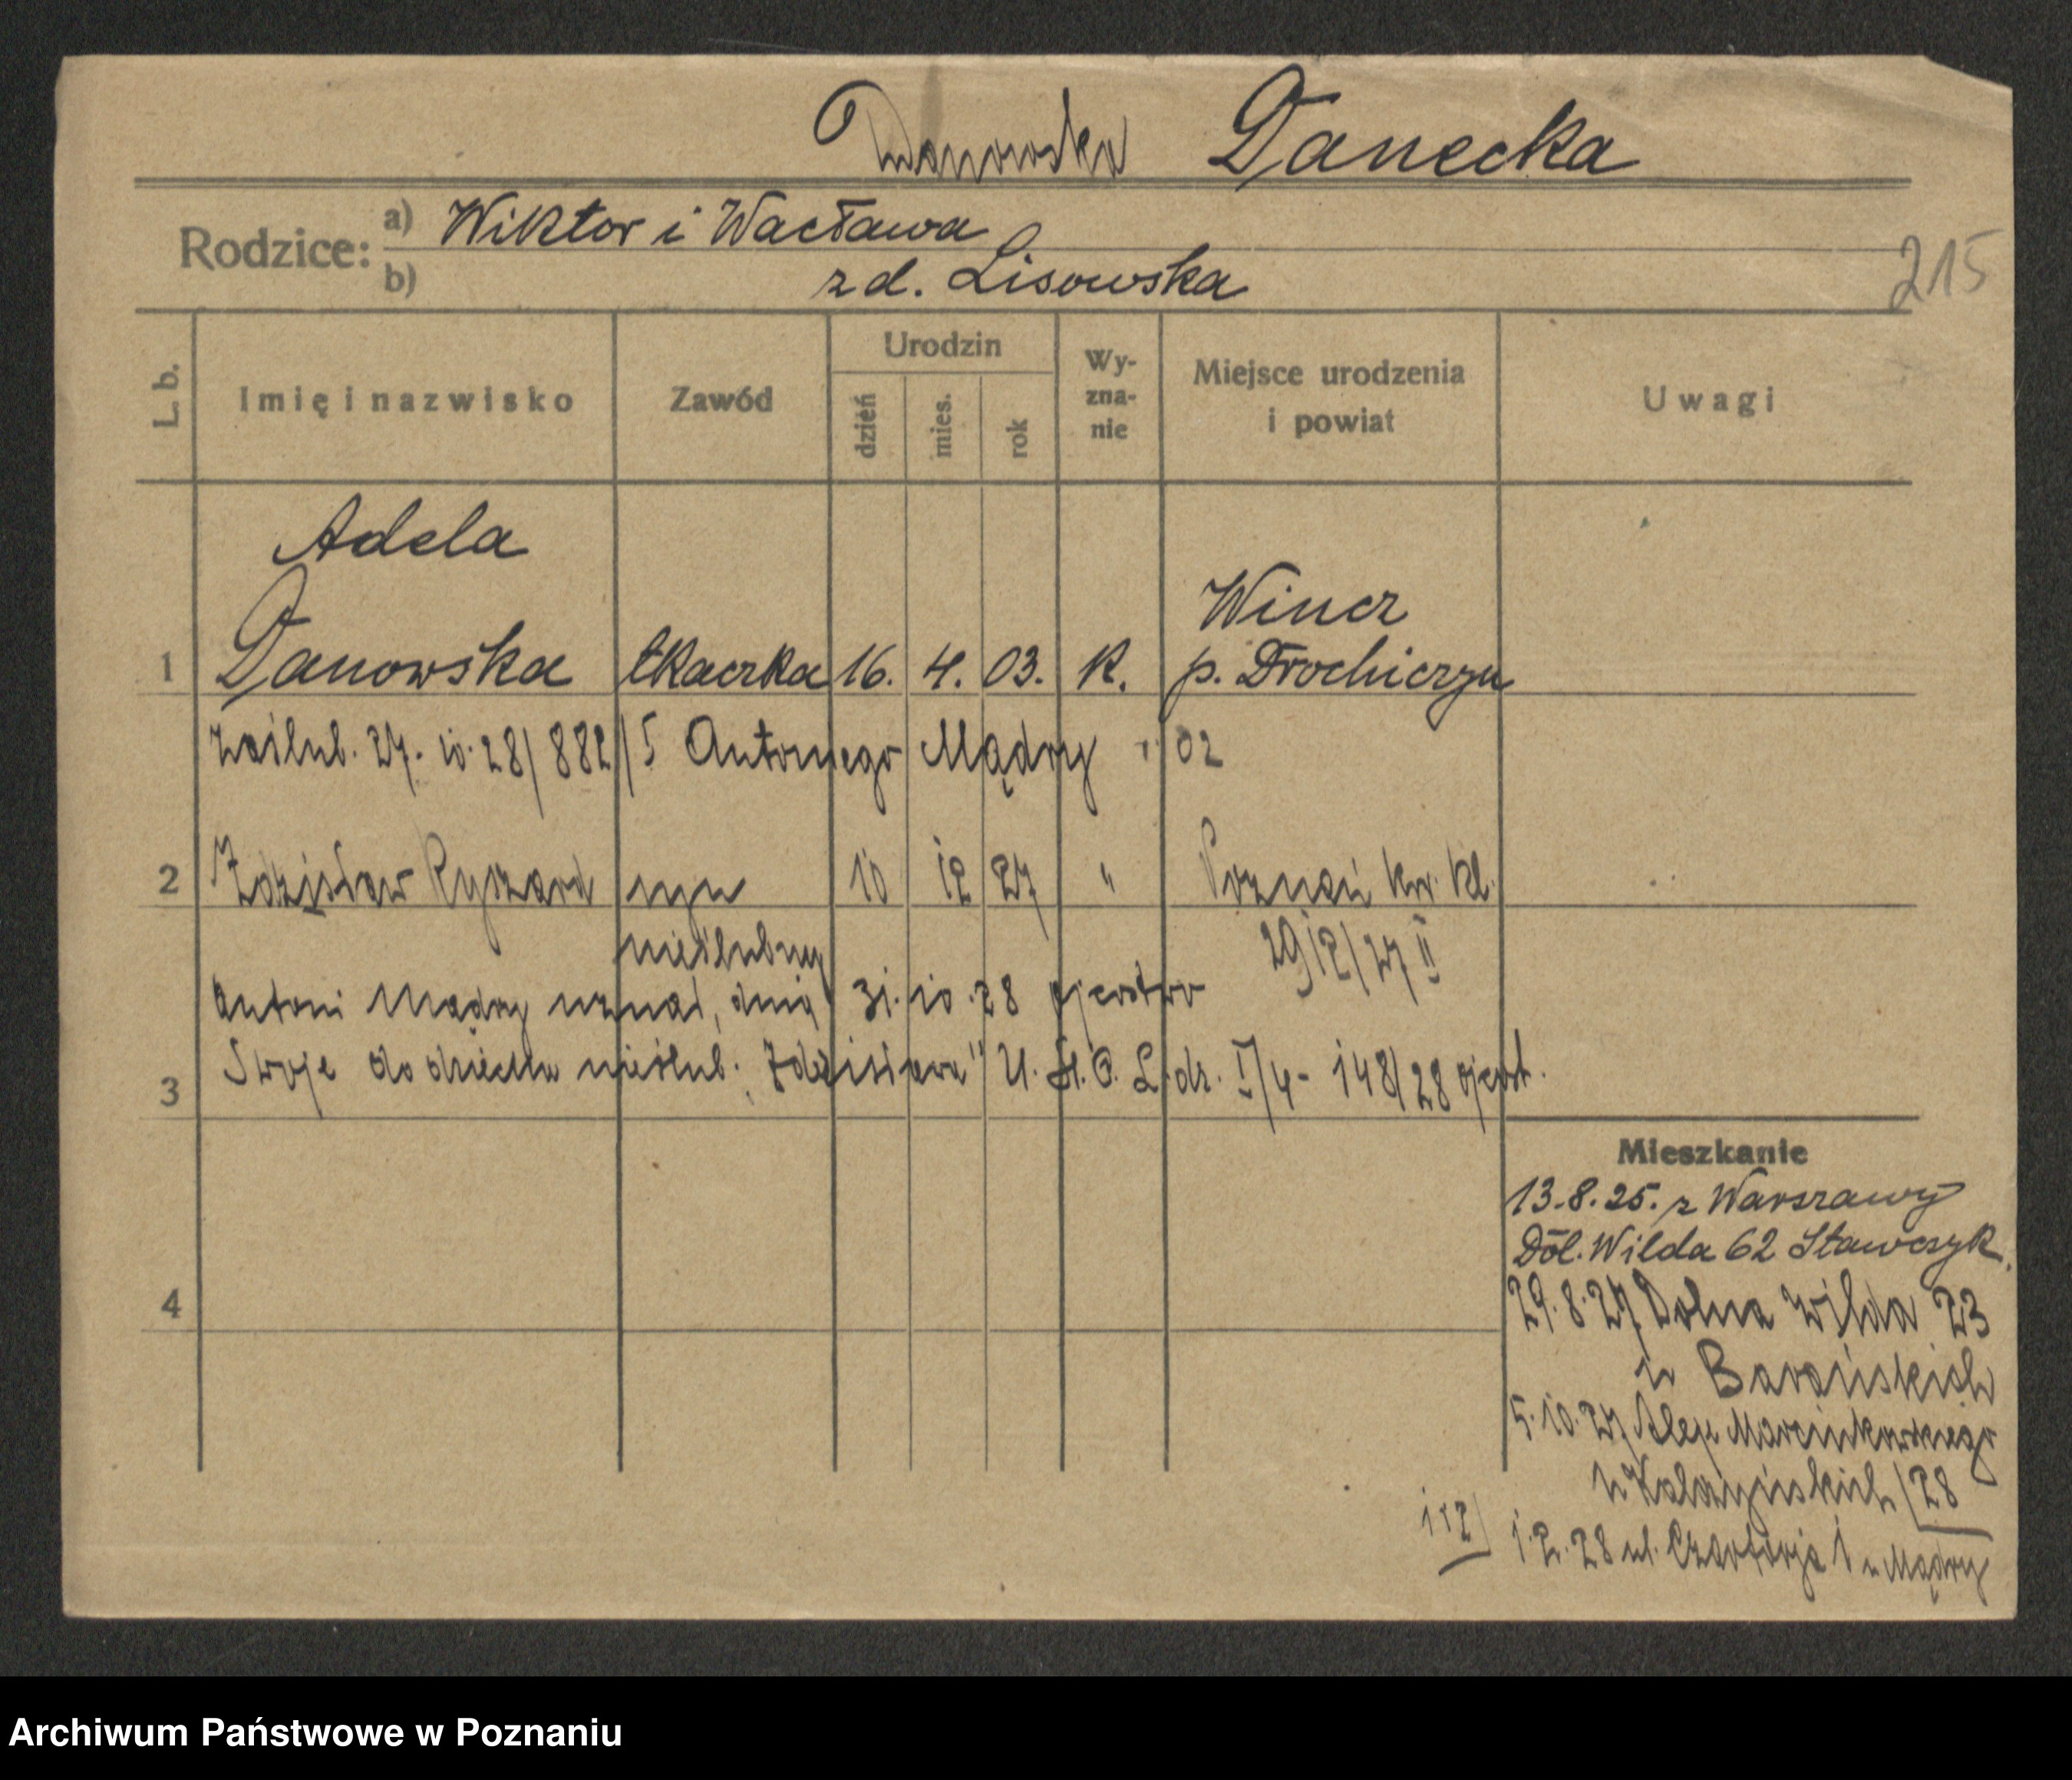 Danowska Danecka
Rodzice: a) Wiktor i Wacława
b) z d. Lisowska
215
L. b. Imię i nazwisko Zawód Urodzin dzień mies. rok Wy-zna-nie Miejsce urodzenia i powiat Uwagi
Adela
Wincz
1 Danowska tkaczka 16. 4. 03. K. p. Drohiczyn
zaślub. 27. 10. 28/882/5 Antoniego Mądry 02
2 Zdzisław Ryszard syn 10 12 27 " Poznań kw. kl.
nieślubny 29/12/27 II
Antoni Mądry uznał, dnia 31. 10. 28 ojcostwo
3 Swoje do dziecka nieślub. "Zdzisława" U. St. C. L. dz. I/4 - 148/28 ojcost.
Mieszkanie
13.8.25. z Warszawy
Dol. Wilda 62 Stawczyk
4
29.8.27 Dolna Wilda 23
u Barańskich
5.10.27 Aleje Marcinkowskiego
u /28
1+2/ 1.2.28 ul. Czartorja 1 u Mądry
Archiwum Państwowe w Poznaniu